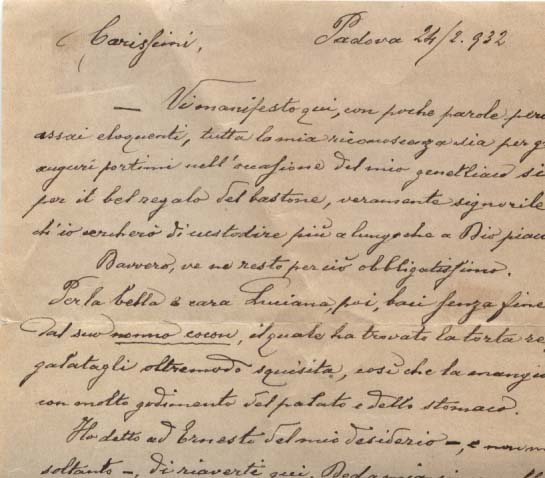 Carissimi, Padova 24/2. 932
— Vi manifesto qui, con poche parole, però
assai eloquenti, tutta la mia riconoscenza sia per g
auguri portimi nell'occasione del mio genetliaco si
per il bel regalo del bastone, veramente signorile
ch'io cercherò di custodire più a lungo che a Dio piac
Davvero, ve ne resto perciò obbligatissimo.
Per la bella e cara Luciana, poi, baci senza fine
dal suo nonno cocon, il quale ha trovato la torta re
galatagli oltremodo squisita, così che la mangiò
con molto godimento del palato e dello stomaco.
Ho detto ad Ernesto del mio desiderio —, e non m
soltanto —, di riaverti qui.